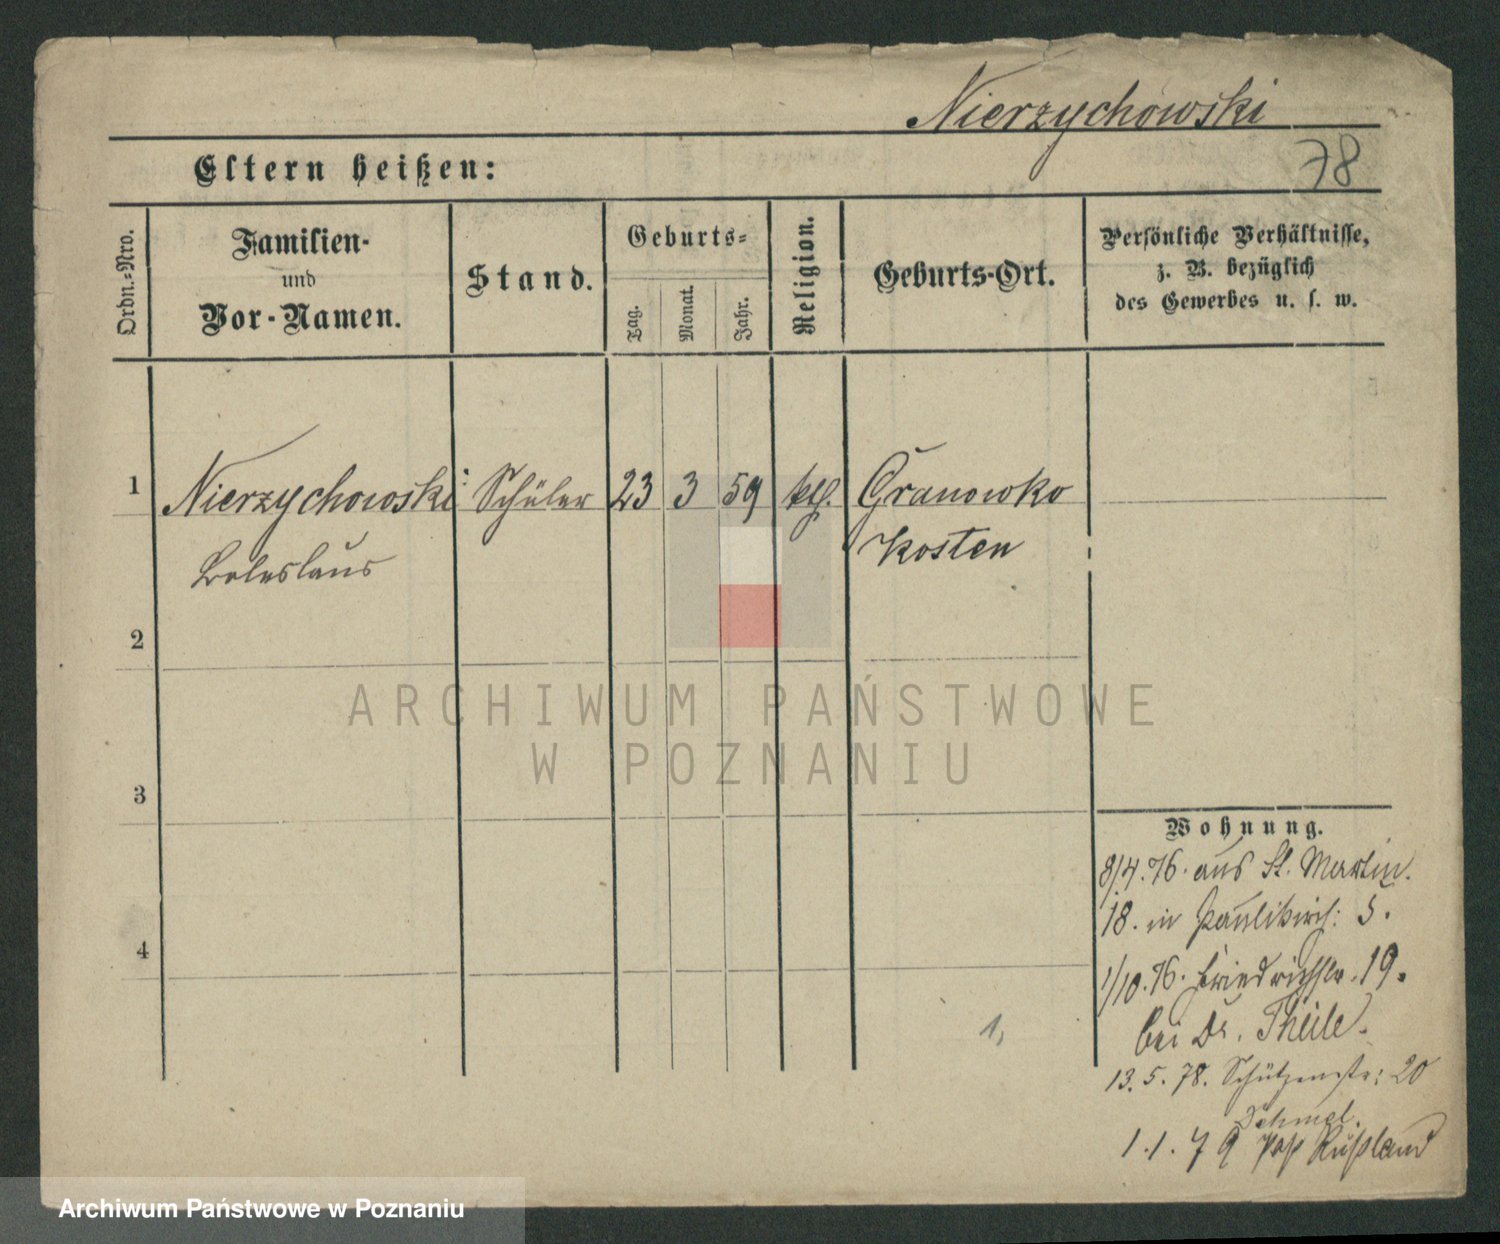 Nierzychowski
78
Eltern heißen:
Ordn.-Nro.
Familien-
und
Vor-Namen.
Stand.
Geburts-
Tag.
Monat.
Jahr.
Religion.
Geburts-Ort.
Persönliche Verhältnisse,
z. B. bezüglich
des Gewerbes u. s. w.
1 Nierzychowski Schüler 23 3 59 kth. Granowko
Boleslaus Kosten
2
3
4
Wohnung.
8/4.76. aus St. Martin.
18. in Paulikirch: 5.
1/10.76. Friedrichstr. 19.
bei Dr. Theile.
13. 5. 78. Schützenstr: 20
1.
1. 1. 79 Paß Rußland
ARCHIWUM PAŃSTWOWE
W POZNANIU
Archiwum Państwowe w Poznaniu